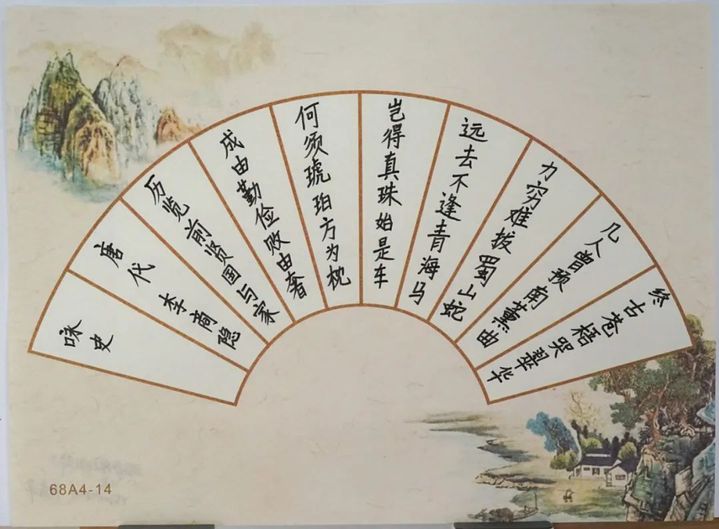 咏史
唐代 李商隐
历览前贤国与家
成由勤俭败由奢
何须琥珀方为枕
岂得真珠始是车
远去不逢青海马
力穷难拔蜀山蛇
几人曾预南薰曲
终古苍梧哭翠华
68A4-14